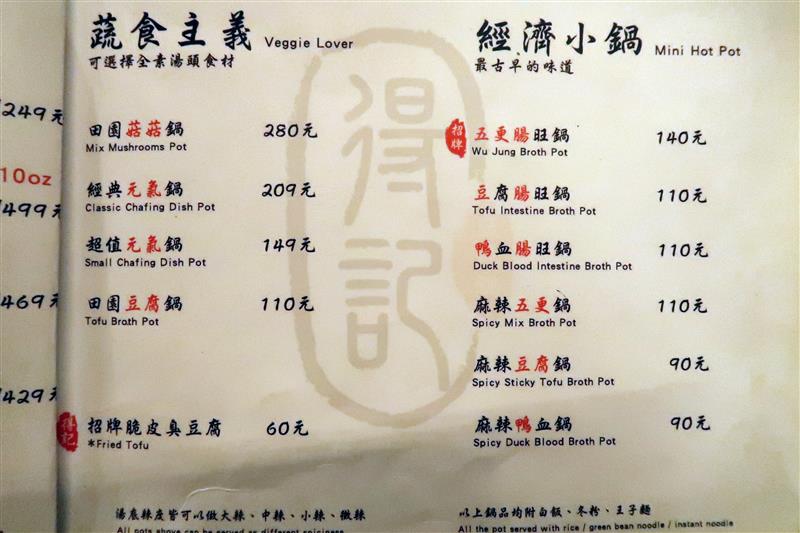 249元
10oz
499元
469元
429元
蔬食主義 Veggie Lover
可選擇全素湯頭食材
田園菇菇鍋 280元
Mix Mushrooms Pot
經典元氣鍋 209元
Classic Chafing Dish Pot
超值元氣鍋 149元
Small Chafing Dish Pot
田園豆腐鍋 110元
Tofu Broth Pot
得記
招牌脆皮臭豆腐 60元
*Fried Tofu
湯底辣度皆可以做大辣、中辣、小辣、微辣
All pots above can be served as different spiciness
得記
經濟小鍋 Mini Hot Pot
最古早的味道
招牌
五更腸旺鍋 140元
Wu Jung Broth Pot
豆腐腸旺鍋 110元
Tofu Intestine Broth Pot
鴨血腸旺鍋 110元
Duck Blood Intestine Broth Pot
麻辣五更鍋 110元
Spicy Mix Broth Pot
麻辣豆腐鍋 90元
Spicy Sticky Tofu Broth Pot
麻辣鴨血鍋 90元
Spicy Duck Blood Broth Pot
以上鍋品均附白飯、冬粉、王子麵
All the pot served with rice / green bean noodle / instant noodle